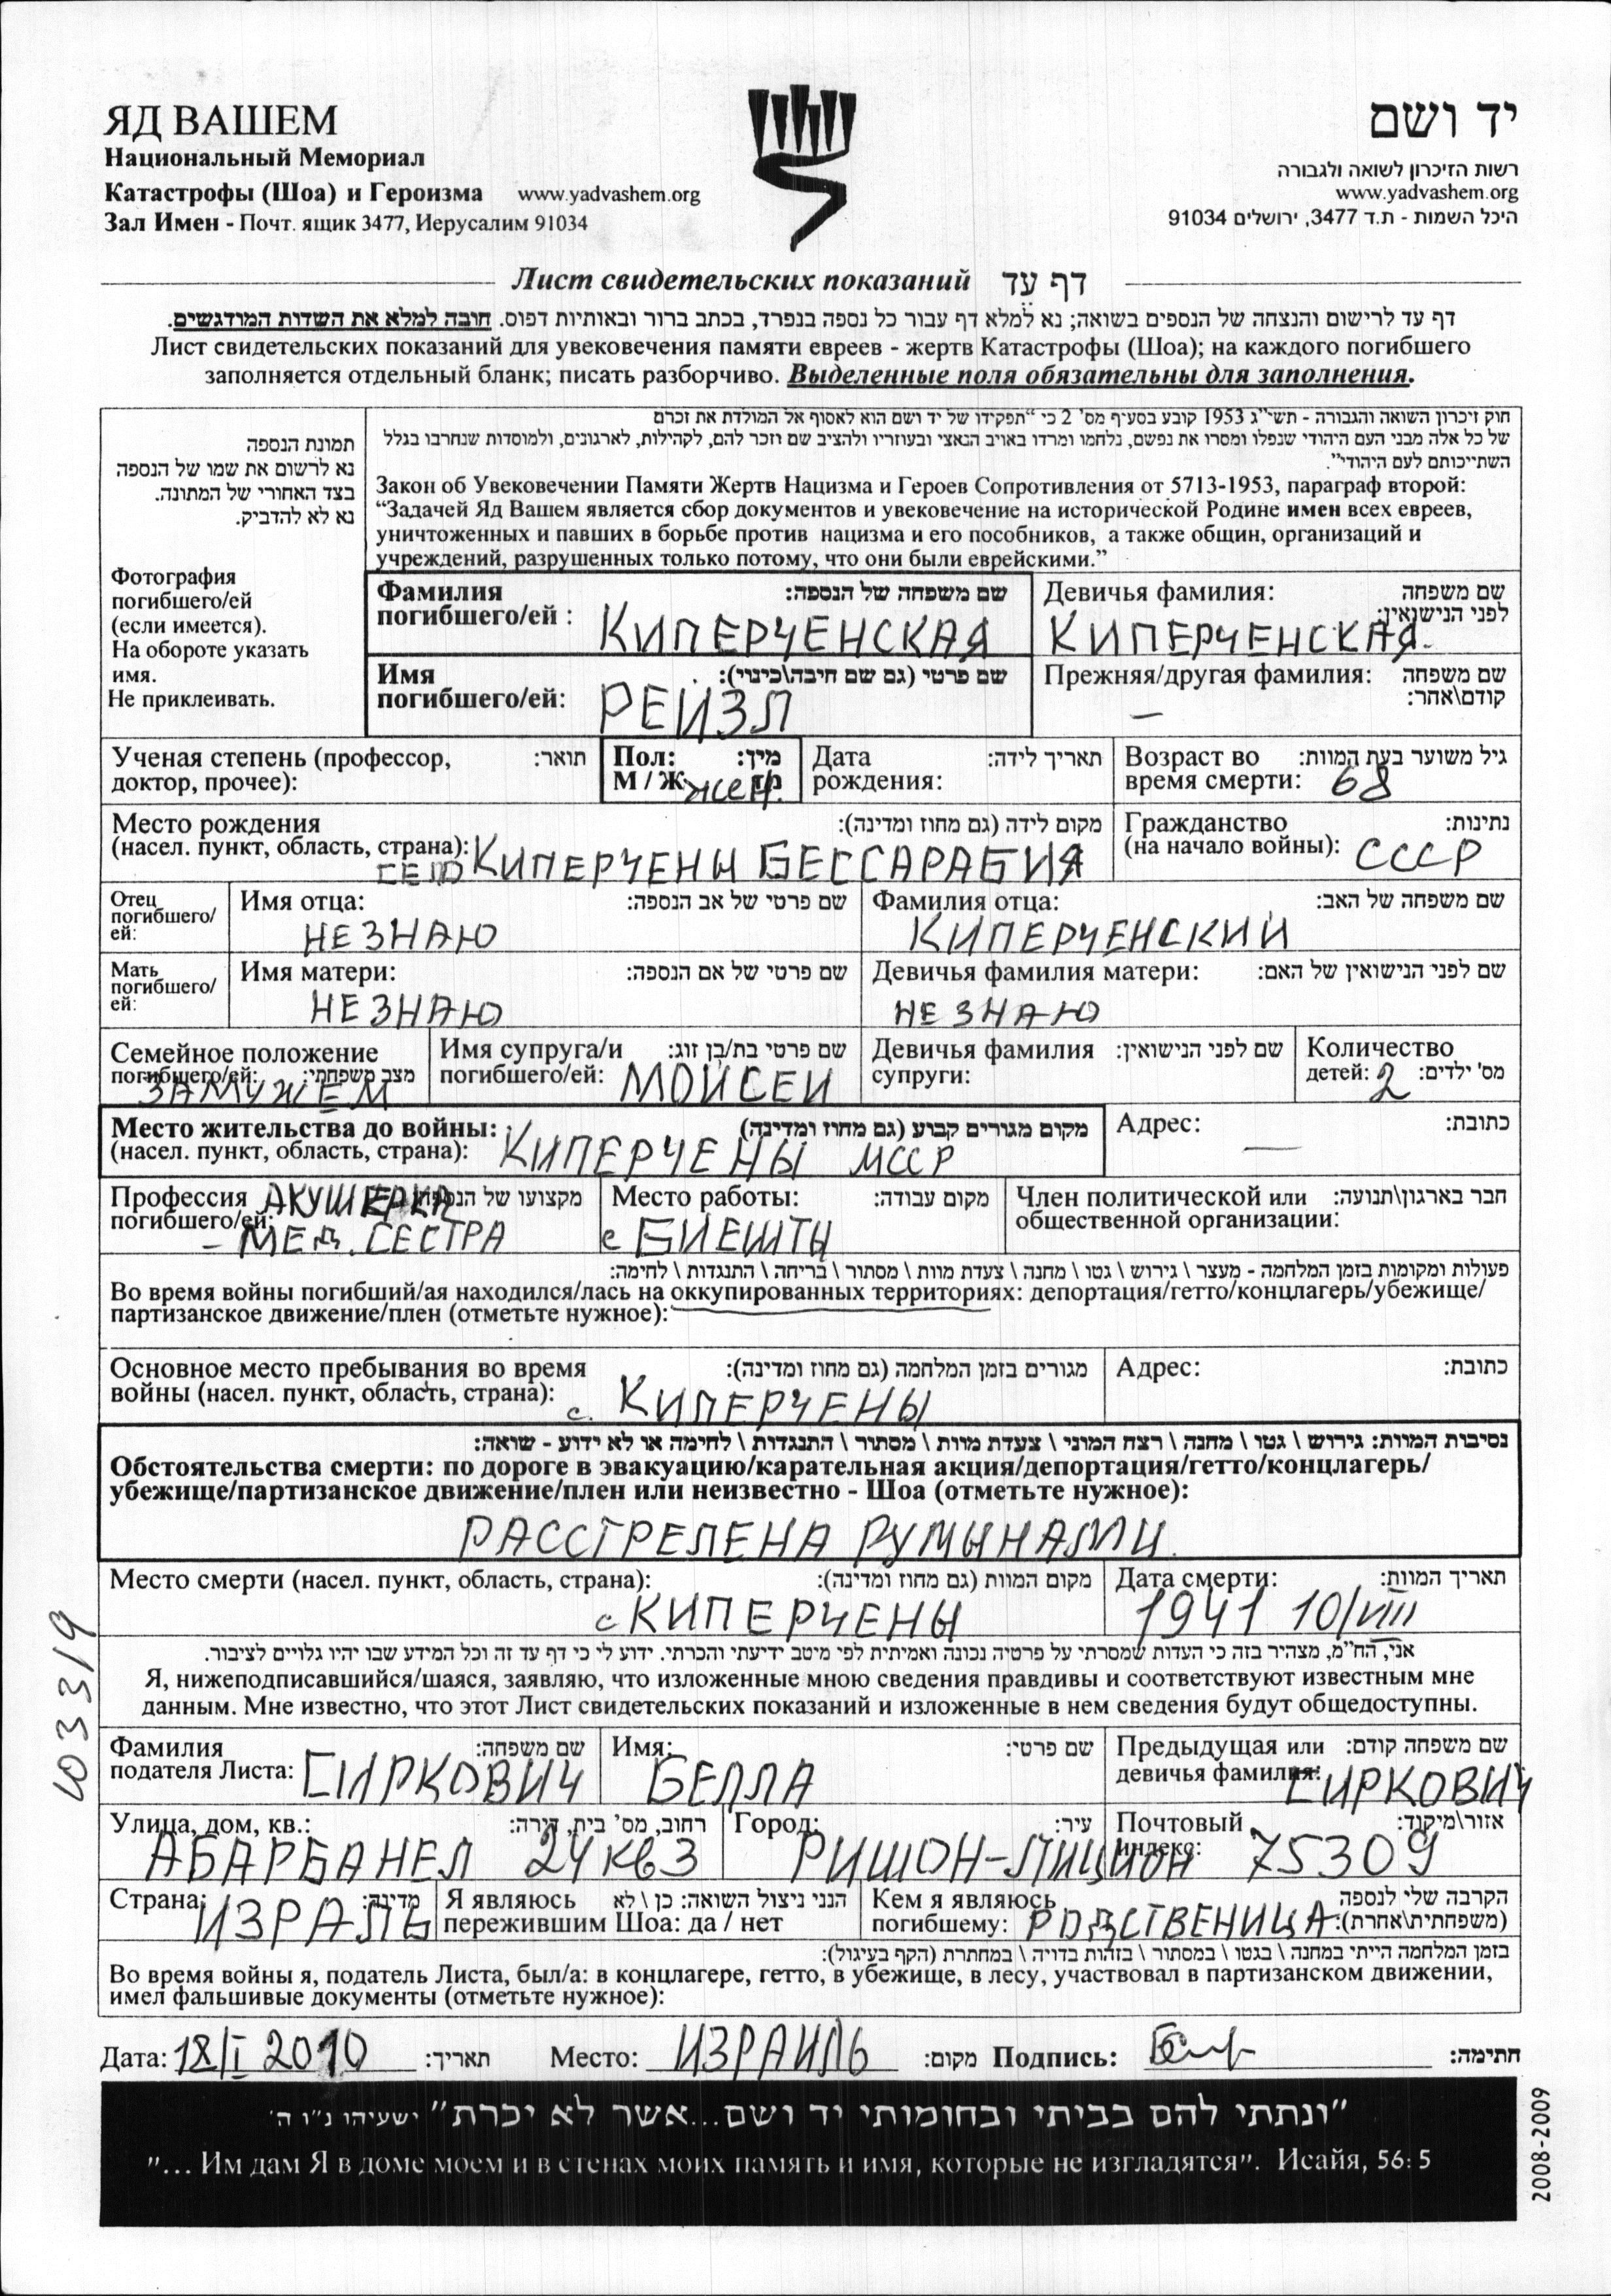 ЯД ВАШЕМ
Национальный Мемориал
Катастрофы (Шоа) и Героизма www.yadvashem.org
Зал Имен - Почт. ящик 3477, Иерусалим 91034
יד ושם
רשות הזיכרון לשואה ולגבורה
www.yadvashem.org
היכל השמות - ת.ד 3477, ירושלים 91034
Лист свидетельских показаний דף עד
דף עד לרישום והנצחה של הנספים בשואה; נא למלא דף עבור כל נספה בנפרד, בכתב ברור ובאותיות דפוס. חובה למלא את השדות המודגשים.
Лист свидетельских показаний для увековечения памяти евреев - жертв Катастрофы (Шоа); на каждого погибшего
заполняется отдельный бланк; писать разборчиво. Выделенные поля обязательны для заполнения.
תמונת הנספה
נא לרשום את שמו של הנספה
בצד האחורי של המתונה.
נא לא להדביק.
Фотография
погибшего/ей
(если имеется).
На обороте указать
имя.
Не приклеивать.
חוק זיכרון השואה והגבורה - תשי"ג 1953 קובע בסעיף מס' 2 כי "תפקידו של יד ושם הוא לאסוף אל המולדת את זכרם
של כל אלה מבני העם היהודי שנפלו ומסרו את נפשם, נלחמו ומרדו באויב הנאצי ובעוזריו ולהציב שם וזכר להם, לקהילות, לארגונים, ולמוסדות שנחרבו בגלל
השתייכותם לעם היהודי".
Закон об Увековечении Памяти Жертв Нацизма и Героев Сопротивления от 5713-1953, параграф второй:
“Задачей Яд Вашем является сбор документов и увековечение на исторической Родине имен всех евреев,
уничтоженных и павших в борьбе против нацизма и его пособников, а также общин, организаций и
учреждений, разрушенных только потому, что они были еврейскими.”
Фамилия שם משפחה של הנספה:
погибшего/ей : КИПЕРЧЕНСКАЯ
Девичья фамилия: שם משפחה
לפני הנישואין:
КИПЕРЧЕНСКАЯ
Имя שם פרטי (גם שם חיבה\כינוי):
погибшего/ей: РЕЙЗЛ
Прежняя/другая фамилия: שם משפחה
קודם\אחר:
—
Ученая степень (профессор, תואר:
доктор, прочее):
Пол: מין:
М / Ж жен.
Дата תאריך לידה:
рождения:
Возраст во גיל משוער בעת המוות:
время смерти: 68
Место рождения מקום לידה (גם מחוז ומדינה):
(насел. пункт, область, страна): СЕЛО КИПЕРЧЕНЫ БЕССАРАБИЯ
Гражданство נתינות:
(на начало войны): СССР
Отец
погибшего/
ей:
Имя отца: שם פרטי של אב הנספה:
НЕ ЗНАЮ
Фамилия отца: שם משפחה של האב:
КИПЕРЧЕНСКИЙ
Мать
погибшего/
ей:
Имя матери: שם פרטי של אם הנספה:
НЕ ЗНАЮ
Девичья фамилия матери: שם לפני הנישואין של האם:
НЕ ЗНАЮ
Семейное положение
погибшего/ей: מצב משפחתי:
ЗАМУЖЕМ
Имя супруга/и שם פרטי בת/בן זוג:
погибшего/ей: МОЙСЕЙ
Девичья фамилия שם לפני הנישואין:
супруги:
Количество
детей: 2 מס' ילדים:
Место жительства до войны: מקום מגורים קבוע (גם מחוז ומדינה)
(насел. пункт, область, страна): КИПЕРЧЕНЫ МССР
Адрес: כתובת:
—
Профессия АКУШЕРКА
погибшего/ей:
- МЕД. СЕСТРА
Место работы: מקום עבודה:
с БИЕШТЫ
Член политической или חבר בארגון\תנועה:
общественной организации:
פעולות ומקומות בזמן המלחמה - מעצר \ גירוש \ גטו \ מחנה \ צעדת מוות \ מסתור \ בריחה \ התנגדות \ לחימה:
Во время войны погибший/ая находился/лась на оккупированных территориях: депортация/гетто/концлагерь/убежище/
партизанское движение/плен (отметьте нужное):
Основное место пребывания во время מגורים בזמן המלחמה (גם מחוז ומדינה):
войны (насел. пункт, область, страна): с. КИПЕРЧЕНЫ
Адрес: כתובת:
נסיבות המוות: גירוש \ גטו \ מחנה \ רצח המוני \ צעדת מוות \ מסתור \ התנגדות \ לחימה או לא ידוע - שואה:
Обстоятельства смерти: по дороге в эвакуацию/карательная акция/депортация/гетто/концлагерь/
убежище/партизанское движение/плен или неизвестно - Шоа (отметьте нужное):
РАССТРЕЛЕНА РУМЫНАМИ.
Место смерти (насел. пункт, область, страна): מקום המוות (גם מחוז ומדינה):
с КИПЕРЧЕНЫ
Дата смерти: תאריך המוות:
1941 10/VIII
אני, הח"מ, מצהיר בזה כי העדות שמסרתי על פרטיה נכונה ואמיתית לפי מיטב ידיעתי והכרתי. ידוע לי כי דף עד זה וכל המידע שבו יהיו גלויים לציבור.
Я, нижеподписавшийся/шаяся, заявляю, что изложенные мною сведения правдивы и соответствуют известным мне
данным. Мне известно, что этот Лист свидетельских показаний и изложенные в нем сведения будут общедоступны.
Фамилия שם משפחה:
подателя Листа: СИРКОВИЧ
Имя: שם פרטי:
БЕЛЛА
Предыдущая или שם משפחה קודם:
девичья фамилия: СИРКОВИЧ
Улица, дом, кв.: רחוב, מס' בית, דירה:
АБАРБАНЕЛ 24 кв 3
Город: עיר:
РИШОН-ЛИЦИОН
Почтовый אזור\מיקוד:
индекс: 75309
Страна: מדינה:
ИЗРАЛЬ
Я являюсь הנני ניצול השואה: כן \ לא
пережившим Шоа: да / нет
Кем я являюсь הקרבה שלי לנספה
погибшему: РОДСТВЕНИЦА (משפחתית\אחרת):
בזמן המלחמה הייתי במחנה \ בגטו \ במסתור \ בזהות בדויה \ במחתרת (הקף בעיגול):
Во время войны я, податель Листа, был/а: в концлагере, гетто, в убежище, в лесу, участвовал в партизанском движении,
имел фальшивые документы (отметьте нужное):
Дата: 18/I 2010 תאריך: Место: ИЗРАИЛЬ מקום: Подпись: חתימה:
"ונתתי להם בביתי ובחומותי יד ושם...אשר לא יכרת" ישעיהו נ"ו ה'
"... Им дам Я в доме моем и в стенах моих память и имя, которые не изгладятся". Исайя, 56: 5
1033/9
2008-2009